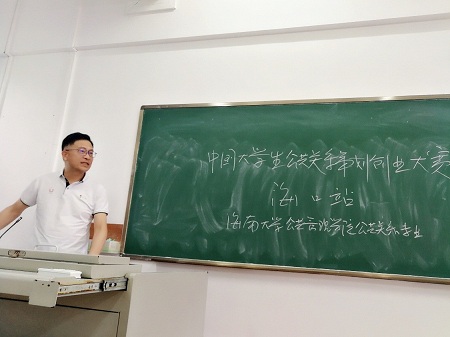 中国大学生公共关系策划创业大赛
海口站
海南大学公共管理学院公共关系专业